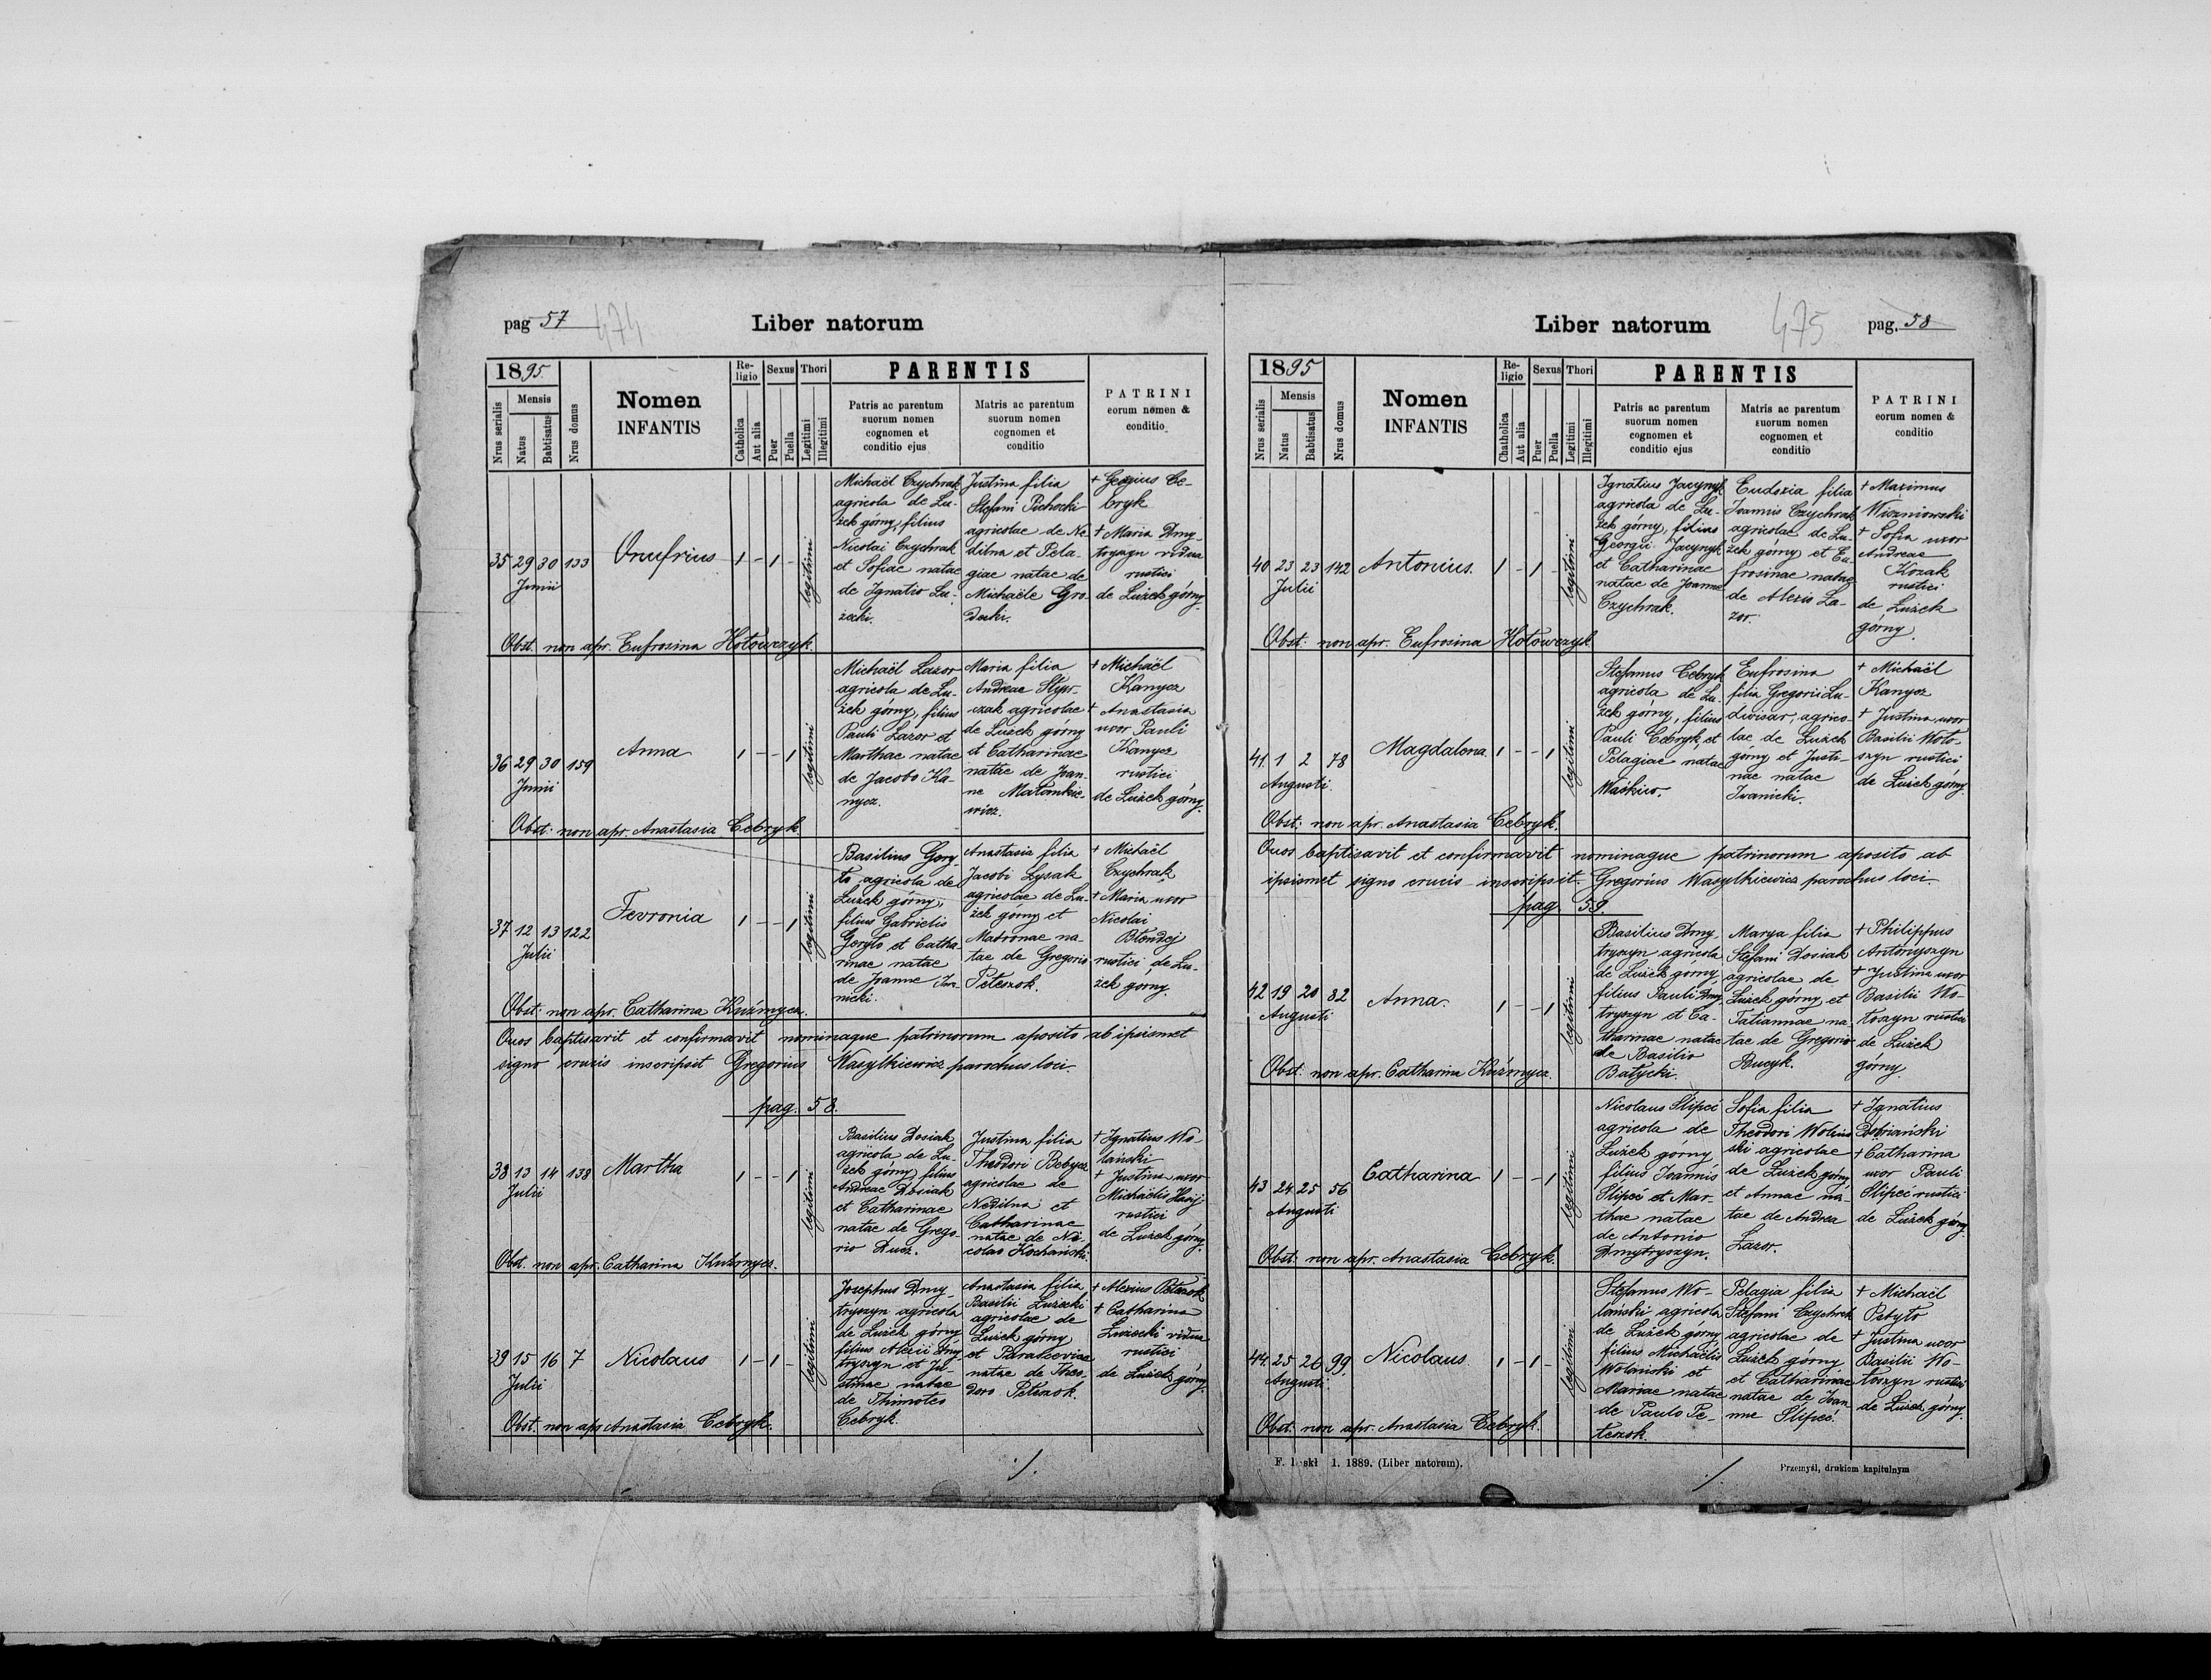 pag 57 474 Liber natorum
1895
Nrus serialis
Mensis
Natus
Babtisatus
Nrus domus
Nomen
INFANTIS
Re-
ligio
Catholica
Aut alia
Sexus
Puer
Puella
Thori
Legitimi
Illegitimi
PARENTIS
Patris ac parentum
suorum nomen
cognomen et
conditio ejus
Matris ac parentum
suorum nomen
cognomen et
conditio
PATRINI
eorum nomen &
conditio
35 29 30 133
Junii
Onufrius
1 - 1 -
legitimi
Michaël Czychrak
agricola de Lu-
żek górny, filius
Nicolai Czychrak
et Sofiae natae
de Ignatio Lu-
żecki.
Justina filia
Stefani Pichocki
agricolae de Ne
dilna et Pela-
giae natae de
Michaële Gro-
decki.
+ Georgius Ce-
bryk
+ Maria Dmy-
tryszyn vidua
rustici
de Lużek górny.
Obst. non apr. Eufrosina Hołowczyk.
36 29 30 159
Junii
Anna
1 - - 1
legitimi
Michaël Lazor
agricola de Lu-
żek górny, filius
Pauli Lazor et
Marthae natae
de Jacobo Ka-
nycz.
Maria filia
Andreae Slyw-
czak agricolae
de Lużek górny
et Catharinae
natae de Joan-
ne Matomkie-
wicz.
+ Michaël
Kanycz
+ Anastasia
uxor Pauli
Kanycz
rustici
de Lużek górny.
Obst: non apr. Anastasia Cebryk
37 12 13 122
Julii
Fevronia
1 - - 1
legitimi
Basilius Gory-
ło agricola de
Lużek górny,
filius Gabrielis
Goryło et Catha-
rinae natae
de Joanne Iwa
nicki.
Anastasia filia
Jacobi Lysak
agricolae de Lu-
żek górny et
Matronae na-
tae de Gregorio
Peteszok.
+ Michaël
Czychrak
+ Maria uxor
Nicolai
Błondej
rustici de Lu-
żek górny.
Obst: non apr. Catharina Kuźmycz.
Quos baptisavit et confirmavit nominaque patrinorum aposito ab ipsismet
signo crucis inscripsit Gregorius Wasylkiewicz parochus loci.
pag. 58.
38 13 14 138
Julii
Martha
1 - - 1
legitimi
Basilius Dosiak
agricola de Lu-
żek górny, filius
Andreae Dosiak
et Catharinae
natae de Grego-
rio Ducz.
Justina filia
Theodori Bebycz
agricolae de
Nedilna et
Catharinae
natae de Ni-
colao Kochański.
+ Ignatius Wo-
lański
+ Justina uxor
Michaëlis
rustici
de Lużek górny.
Obst. non apr. Catharina Kuźmycz.
39 15 16 7
Julii
Nicolaus
1 - 1 -
legitimi
Josephus Dmy-
tryszyn agricola
de Lużek górny
filius Alexii Dmy
tryszyn et Ju-
stinae natae
de Thimoteo
Cebryk.
Anastasia filia
Basilii Lużecki
agricolae de
Lużek górny
et Parasceviae
natae de Theo-
doro Peteszok.
+ Alexius
+ Catharina
Lużecki vidua
rustici
de Lużek górny.
Obst. non apr Anastasia Cebryk.
./.
Liber natorum 475 pag. 58
1895
Nrus serialis
Mensis
Natus
Babtisatus
Nrus domus
Nomen
INFANTIS
Re-
ligio
Chatholica
Aut alia
Sexus
Puer
Puella
Thori
Legitimi
Illegitimi
PARENTIS
Patris ac parentum
suorum nomen
cognomen et
conditio ejus
Matris ac parentum
suorum nomen
cognomen et
conditio
PATRINI
eorum nomen &
conditio
40 23 23 142
Julii
Antonius.
1 - 1 -
legitimi
Ignatius Jacynyk
agricola de Lu-
żek górny, filius
Georgii Jacynyk
et Catharinae
natae de Joanne
Czychrak.
Eudoxia filia
Joannis Czychrak
agricolae de Lu-
żek górny et Eu-
frosinae natae
de Alexio La-
zor.
+ Maximus
Wiszniowski
+ Sofia uxor
Andreae
Kozak
rustici
de Lużek
górny.
Obst: non apr. Eufrosina Hołowczyk
41. 1 2 78
Augusti.
Magdalena.
1 - - 1
legitimi
Stefanus Cebryk
agricola de Lu-
żek górny, filius
Pauli Cebryk et
Pelagiae natae
Waśkiw.
Eufrosina
filia Gregorii Lu-
dwisar, agrico-
lae de Lużek
górny et Justi-
nae natae
Iwanicki.
+ Michaël
Kanycz
+ Justina uxor
Basilii Woło-
szyn rustici
de Lużek górny.
Obst: non apr. Anastasia Cebryk.
Quos baptisavit et confirmavit nominaque patrinorum aposito ab
ipsismet signo crucis inscripsit. Gregorius Wasylkiewicz parochus loci.
pag. 59.
42 19 20 82
Augusti
Anna.
1 - - 1
legitimi
Basilius Dmy-
tryszyn agricola
de Lużek górny
filius Pauli Dmy
tryszyn et Ca-
tharinae natae
de Basilio
Batycki.
Marya filia
Stefani Dosiak
agricolae de
Lużek górny, et
Tatiannae na-
tae de Gregorio
Bucyk.
+ Philippus
Antonyszyn
+ Justina uxor
Basilii Wo-
łoszyn rustici
de Lużek
górny.
Obst: non apr. Catharina Kuźmycz.
43 24 25 56
Augusti
Catharina
1 - - 1
legitimi
Nicolaus Slipeć
agricola de
Lużek górny
filius Joannis
Slipeć et Mar-
thae natae
de Antonio
Dmytryszyn.
Sofia filia
Theodori
ski agricolae
de Lużek górny
et Annae na-
tae de Andrea
Lazor.
+ Ignatius
Dobriański
+ Catharina
uxor Pauli
Slipeć rustici
de Lużek górny.
Obst: non apr. Anastasia Cebryk.
44. 25 26 99.
Augusti.
Nicolaus
1 - 1 -
legitimi
Stefanus Wo-
lański agricola
de Lużek górny
filius Michaëlis
Wolański et
Mariae natae
de Paulo Pe-
teszok.
Pelagia filia
Stefani Czychrak
agricolae de
Lużek górny
et Catharinae
natae de Joan-
ne Slipeć.
+ Michaël
+ Justina uxor
Basilii Wo-
łoszyn rustici
de Lużek górny.
Obst: non apr. Anastasia Cebryk.
F. 1. skł 1. 1889. (Liber natorum).
./.
Przemyśl, drukiem kapitulnym